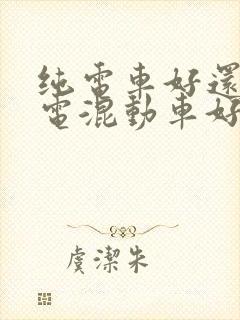 纯電車好還
電混動車好
虞潔朱